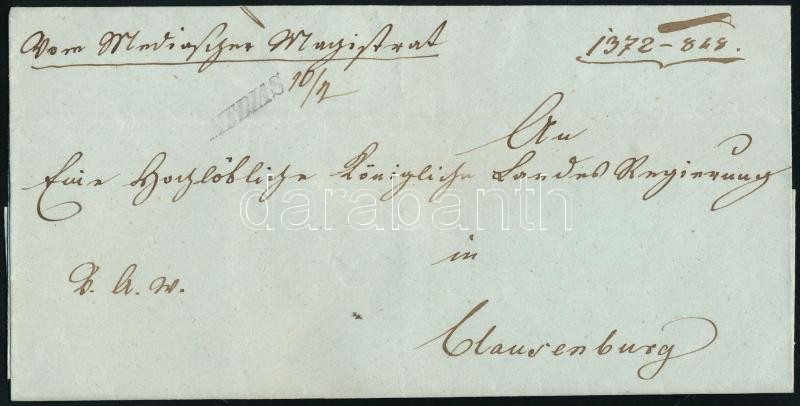 Vom Mediascher Magistrat
1372 - 848.
MEDIAS 10/7
An
Eine Hochlöbliche Königliche Landes Regierung
darabanth
in
V. A. w.
Clausenburg